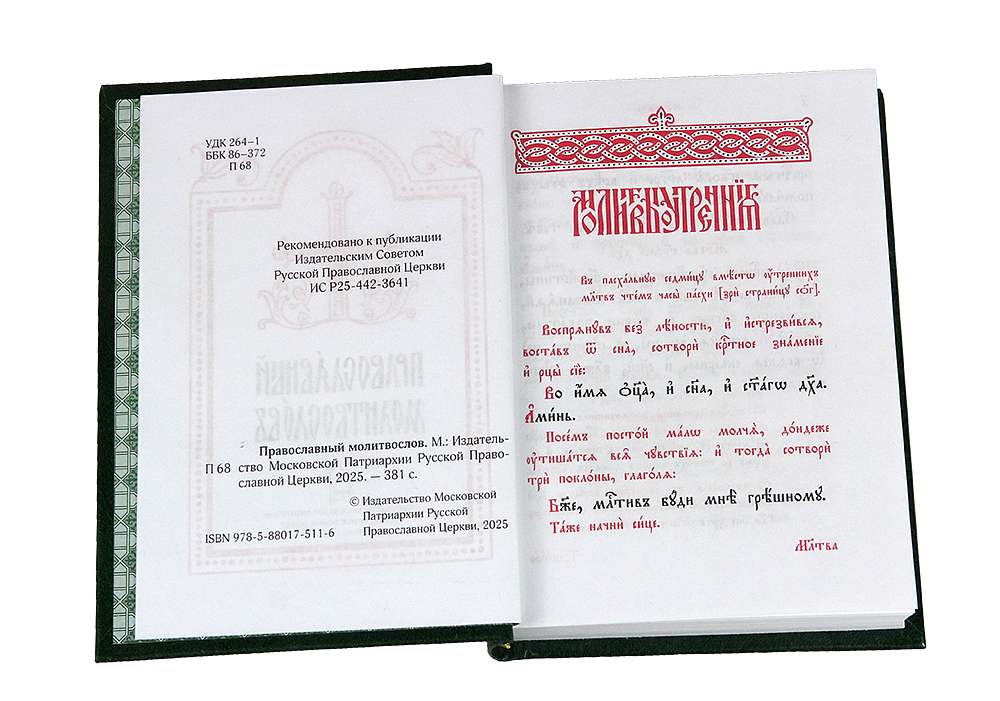 УДК 264–1
ББК 86–372
П 68
Рекомендовано к публикации
Издательским Советом
Русской Православной Церкви
ИС Р25-442-3641
Православный молитвослов. М.: Издатель-
П 68 ство Московской Патриархии Русской Право-
славной Церкви, 2025. — 381 с.
© Издательство Московской
Патриархии Русской
Православной Церкви, 2025
ISBN 978-5-88017-511-6
Мл҃твы ᲂу҆́трєннїѧ
Въ пасха́льную седми́цу вмѣ́стѡ ᲂу҆́треннихъ
мл҃твъ чте́мъ часы̀ па́схи [зрѝ страни́цу со҃г].
Воспрѧ́нувъ без̾ лѣ́ности, и҆ и҆стрезви́всѧ,
воста́въ ѿ сна̀, сотворѝ крⷭ҇тное зна́менїе
и҆ рцы̀ сїѐ:
Во и҆́мѧ ѻ҆ц҃а̀, и҆ сн҃а, и҆ ст҃а́гѡ дх҃а.
А҆ми́нь.
Посе́мъ посто́й ма́лѡ молча̀, до́ндеже
ᲂу҆тиша́тсѧ всѧ̑ чу̑вствїѧ: и҆ тогда̀ сотворѝ
трѝ покло́ны, глаго́лѧ:
Бж҃е, млⷭ҇тивъ бу́ди мнѣ̀ грѣ́шному.
Та́же начнѝ си́це.
Мл҃тва